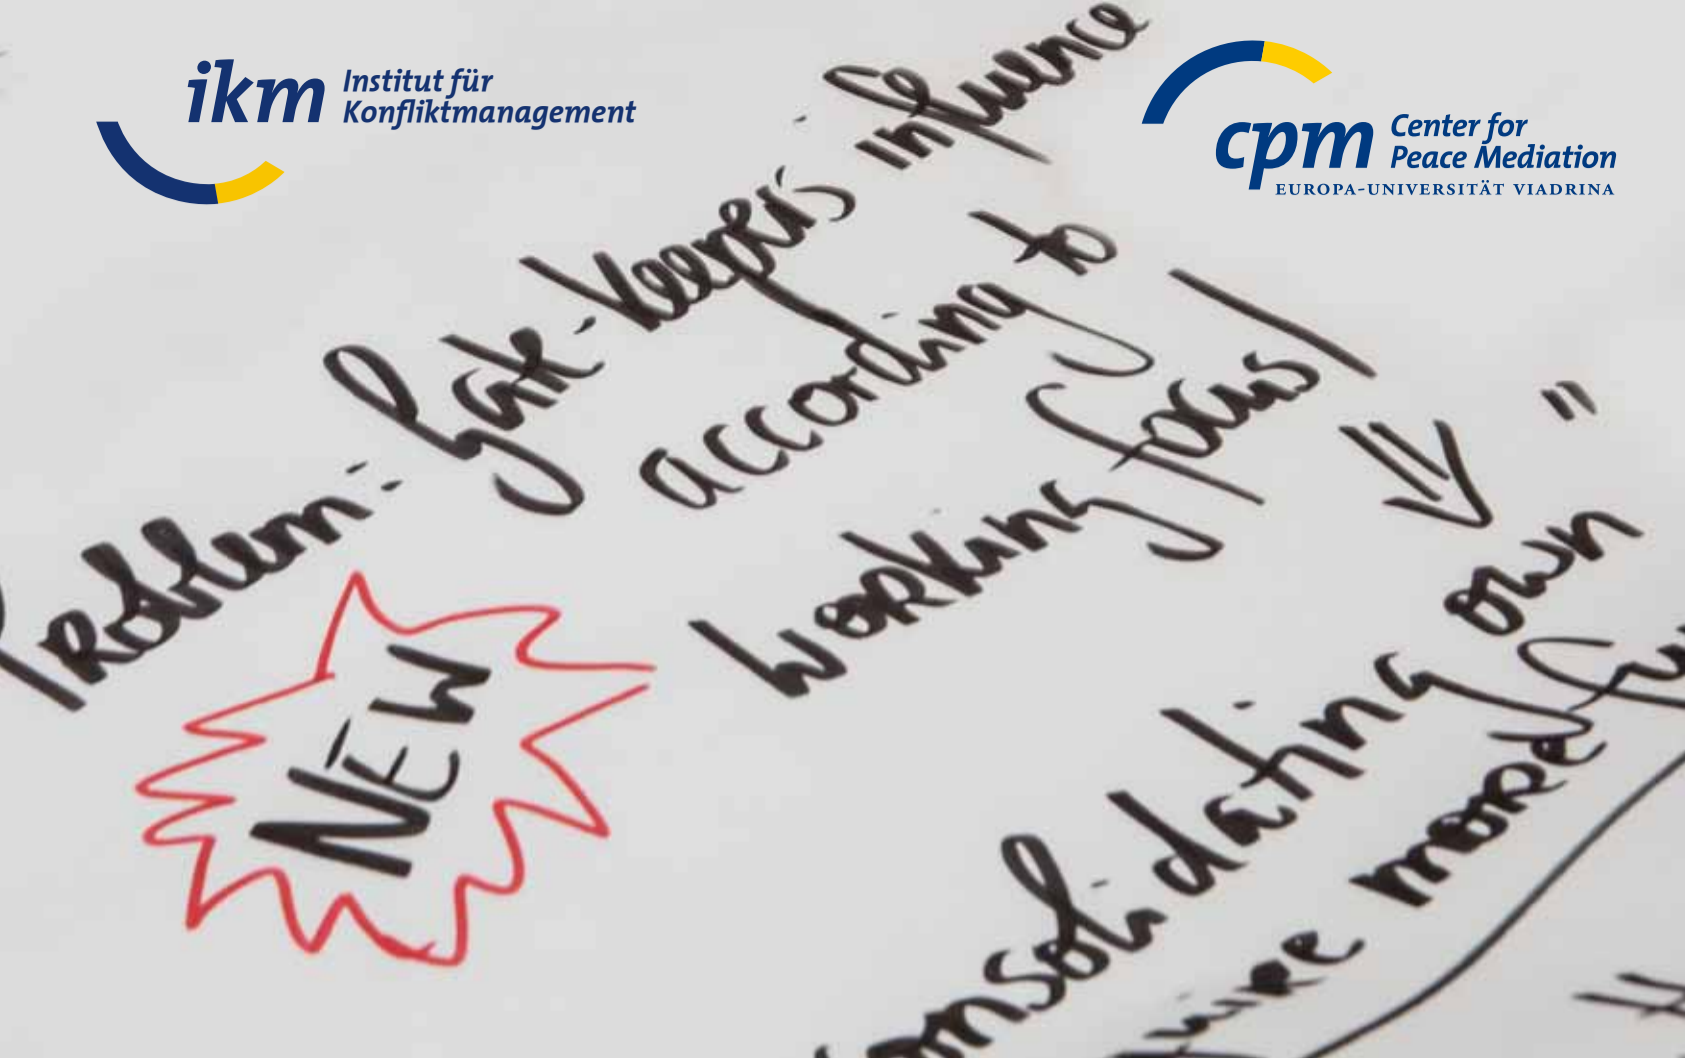 ikm Institut für
Konfliktmanagement
cpm Center for
Peace Mediation
EUROPA-UNIVERSITÄT VIADRINA
Problem: Gate-Keeper's influence
according to
working focus!
"
NEW
consolidating own
more